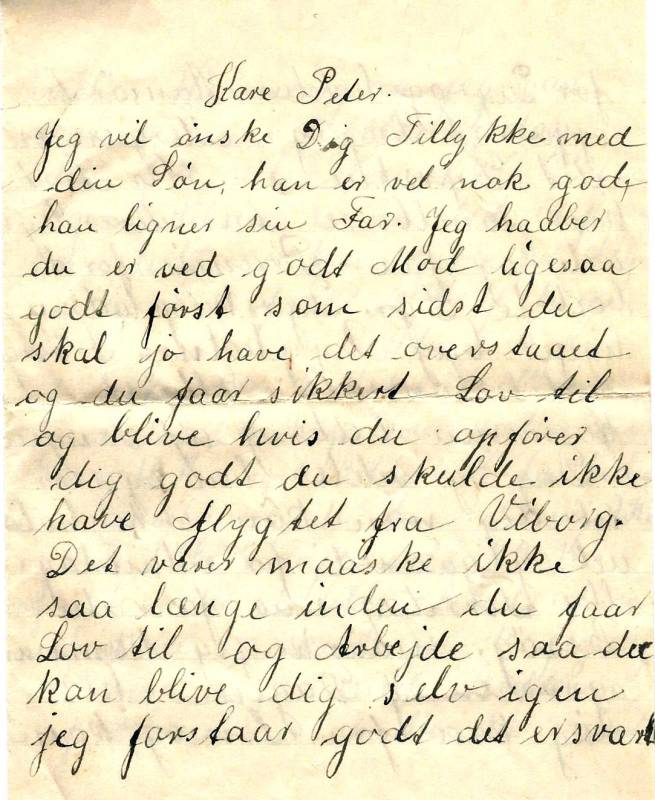 Kære Peter.
Jeg vil ønske Dig Tillykke med
din Søn, han er vel nok god,
han ligner sin Far. Jeg haaber
du er ved godt Mod ligesaa
godt først som sidst du
skal jo have det overstaaet
og du faar sikkert Lov til
og blive hvis du opfører
dig godt du skulde ikke
have flygtet fra Viborg.
Det varer maaske ikke
saa længe inden du faar
Lov til og Arbejde saa du
kan blive dig selv igen
jeg forstaar godt det er svart